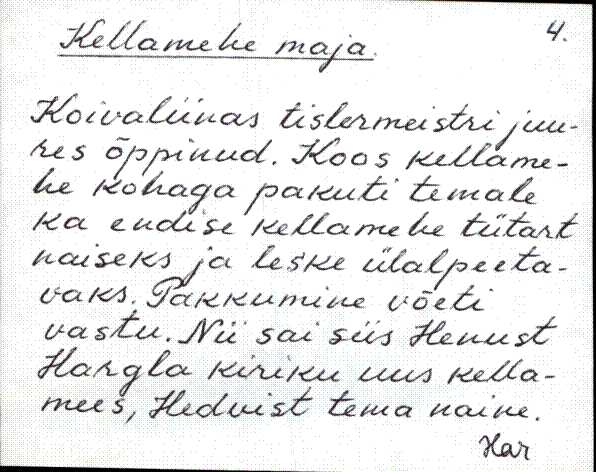 4.
Kellamehe maja.
Koivaliinas tislermeistri juu-
res õppinud. Koos kellame-
he kohaga pakuti temale
ka endise kellamehe tütart
naiseks ja leske ülalpeeta-
vaks. Pakkumine võeti
vastu. Nii sai siis Henust
Hargla kiriku uus kella-
mees, Hedvist tema naine.
Har